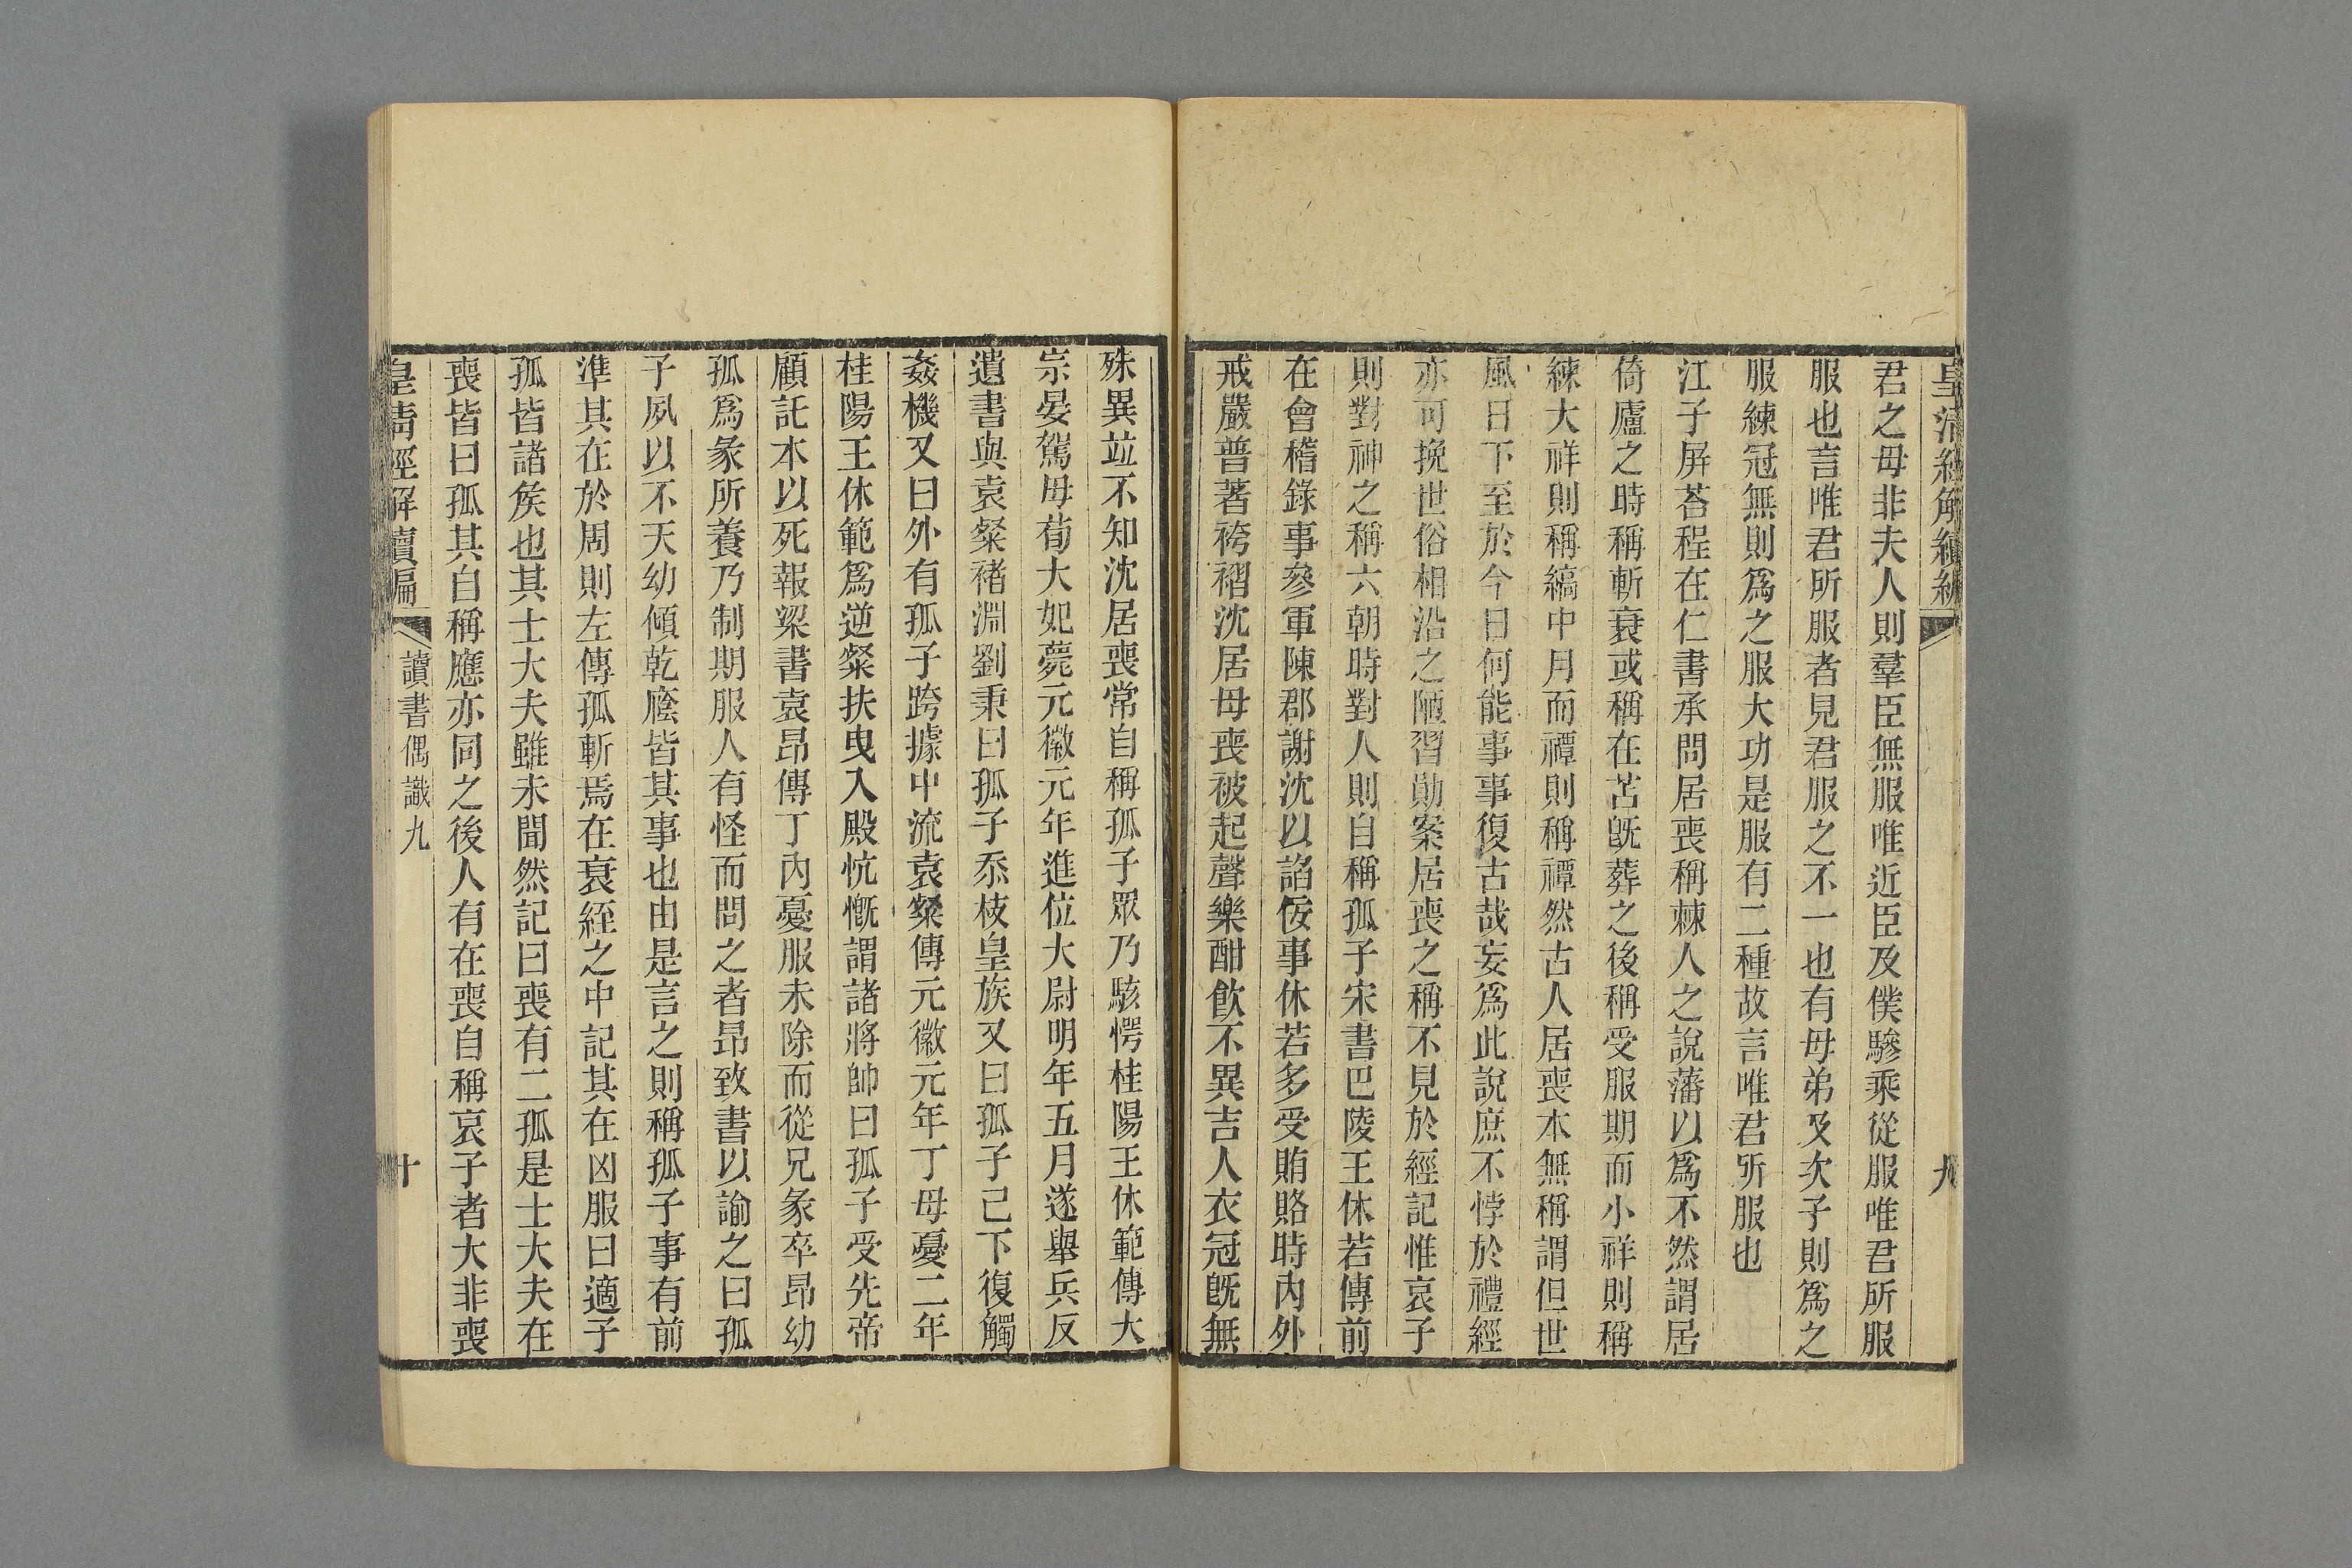 皇清經解續編
九
君之母非夫人則羣臣無服唯近臣及僕驂乘從服唯君所服
服也言唯君所服者見君服之不一也有母弟及次子則爲之
服練冠無則爲之服大功是服有二種故言唯君所服也
江子屏荅程在仁書承問居喪稱棘人之說藩以爲不然謂居
倚廬之時稱斬衰或稱在苫旣葬之後稱受服期而小祥則稱
練大祥則稱縞中月而禫則稱禫然古人居喪本無稱謂但世
風日下至於今日何能事事復古哉妄爲此說庶不悖於禮經
亦可挽世俗相沿之陋習勛案居喪之稱不見於經記惟哀子
則對神之稱六朝時對人則自稱孤子宋書巴陵王休若傳前
在會稽錄事參軍陳郡謝沈以諂佞事休若多受賄賂時內外
戒嚴普著袴褶沈居母喪被起聲樂酣飮不異吉人衣冠旣無
殊異竝不知沈居喪常自稱孤子眾乃駭愕桂陽王休範傳大
宗晏駕毋荀大妃薨元徽元年進位大尉明年五月遂舉兵反
遺書與袁粲褚淵劉秉曰孤子忝枝皇族又曰孤子己下復觸
姦機又曰外有孤子跨據中流袁粲傳元徽元年丁母憂二年
桂陽王休範爲逆粲扶曳入殿忼慨謂諸將帥曰孤子受先帝
顧託本以死報梁書袁昂傳丁內憂服未除而從兄彖卒昂幼
孤爲彖所養乃制期服人有怪而問之者昂致書以諭之曰孤
子夙以不天幼傾乾廕皆其事也由是言之則稱孤子事有前
準其在於周則左傳孤斬焉在衰絰之中記其在凶服曰適子
孤皆諸矦也其士大夫雖未聞然記曰喪有二孤是士大夫在
喪皆曰孤其自稱應亦同之後人有在喪自稱哀子者大非喪
皇淸經解續編
讀書偶識九
十